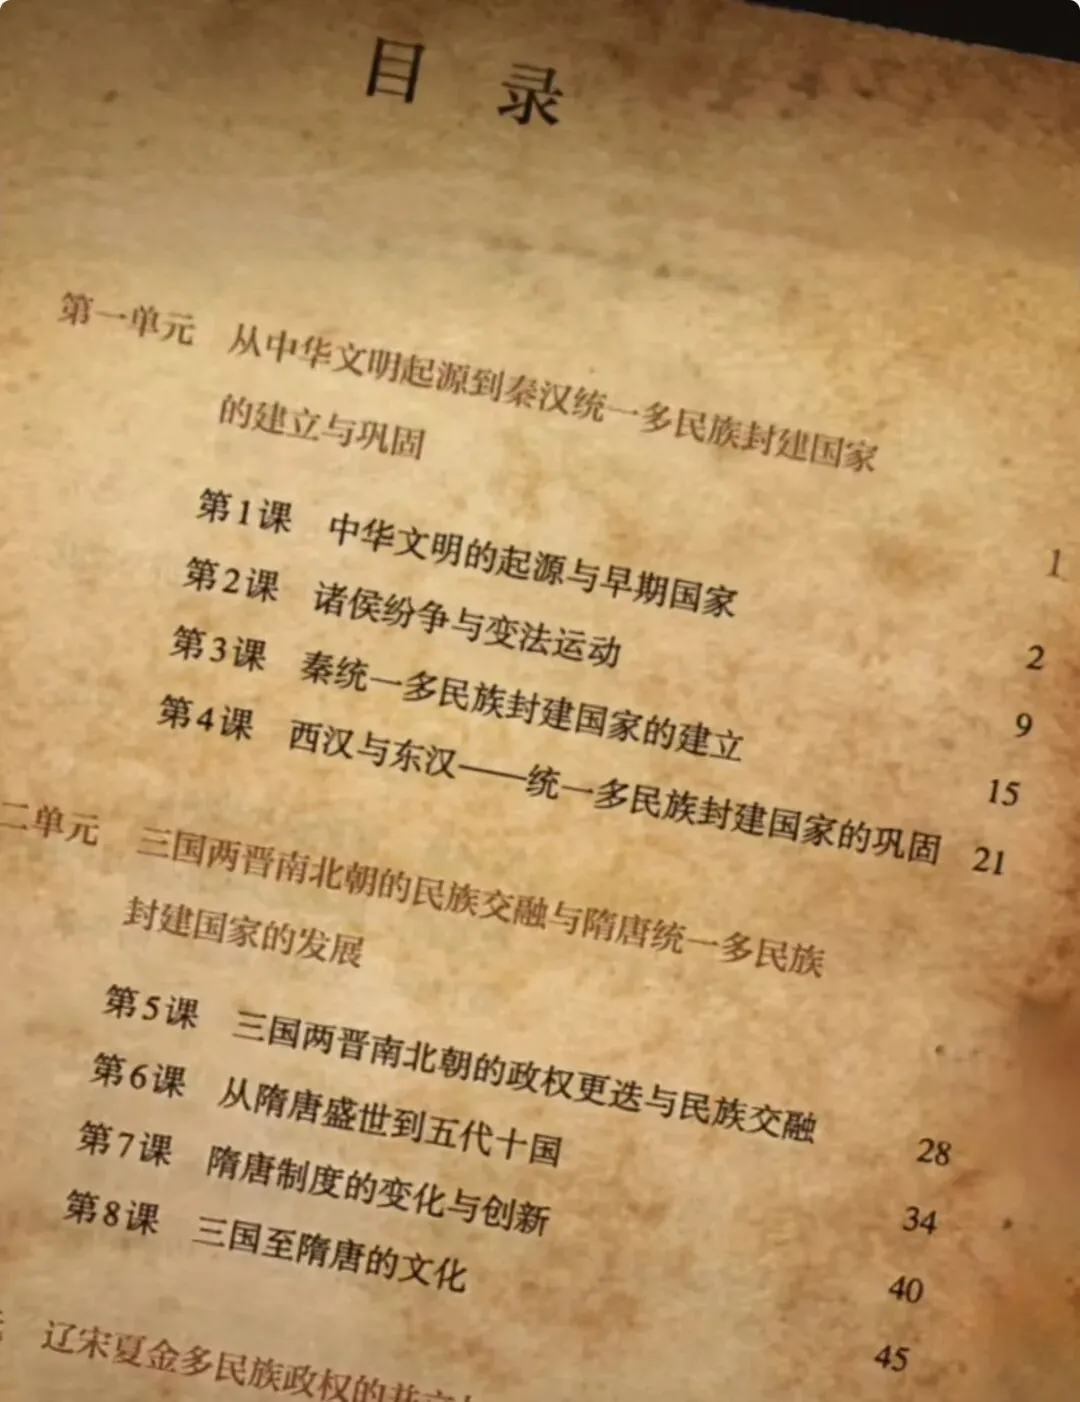 目 录
第一单元 从中华文明起源到秦汉统一多民族封建国家
的建立与巩固 1
第1课 中华文明的起源与早期国家 2
第2课 诸侯纷争与变法运动 9
第3课 秦统一多民族封建国家的建立 15
第4课 西汉与东汉——统一多民族封建国家的巩固 21
二单元 三国两晋南北朝的民族交融与隋唐统一多民族
封建国家的发展
第5课 三国两晋南北朝的政权更迭与民族交融 28
第6课 从隋唐盛世到五代十国 34
第7课 隋唐制度的变化与创新 40
第8课 三国至隋唐的文化 45
辽宋夏金多民族政权的